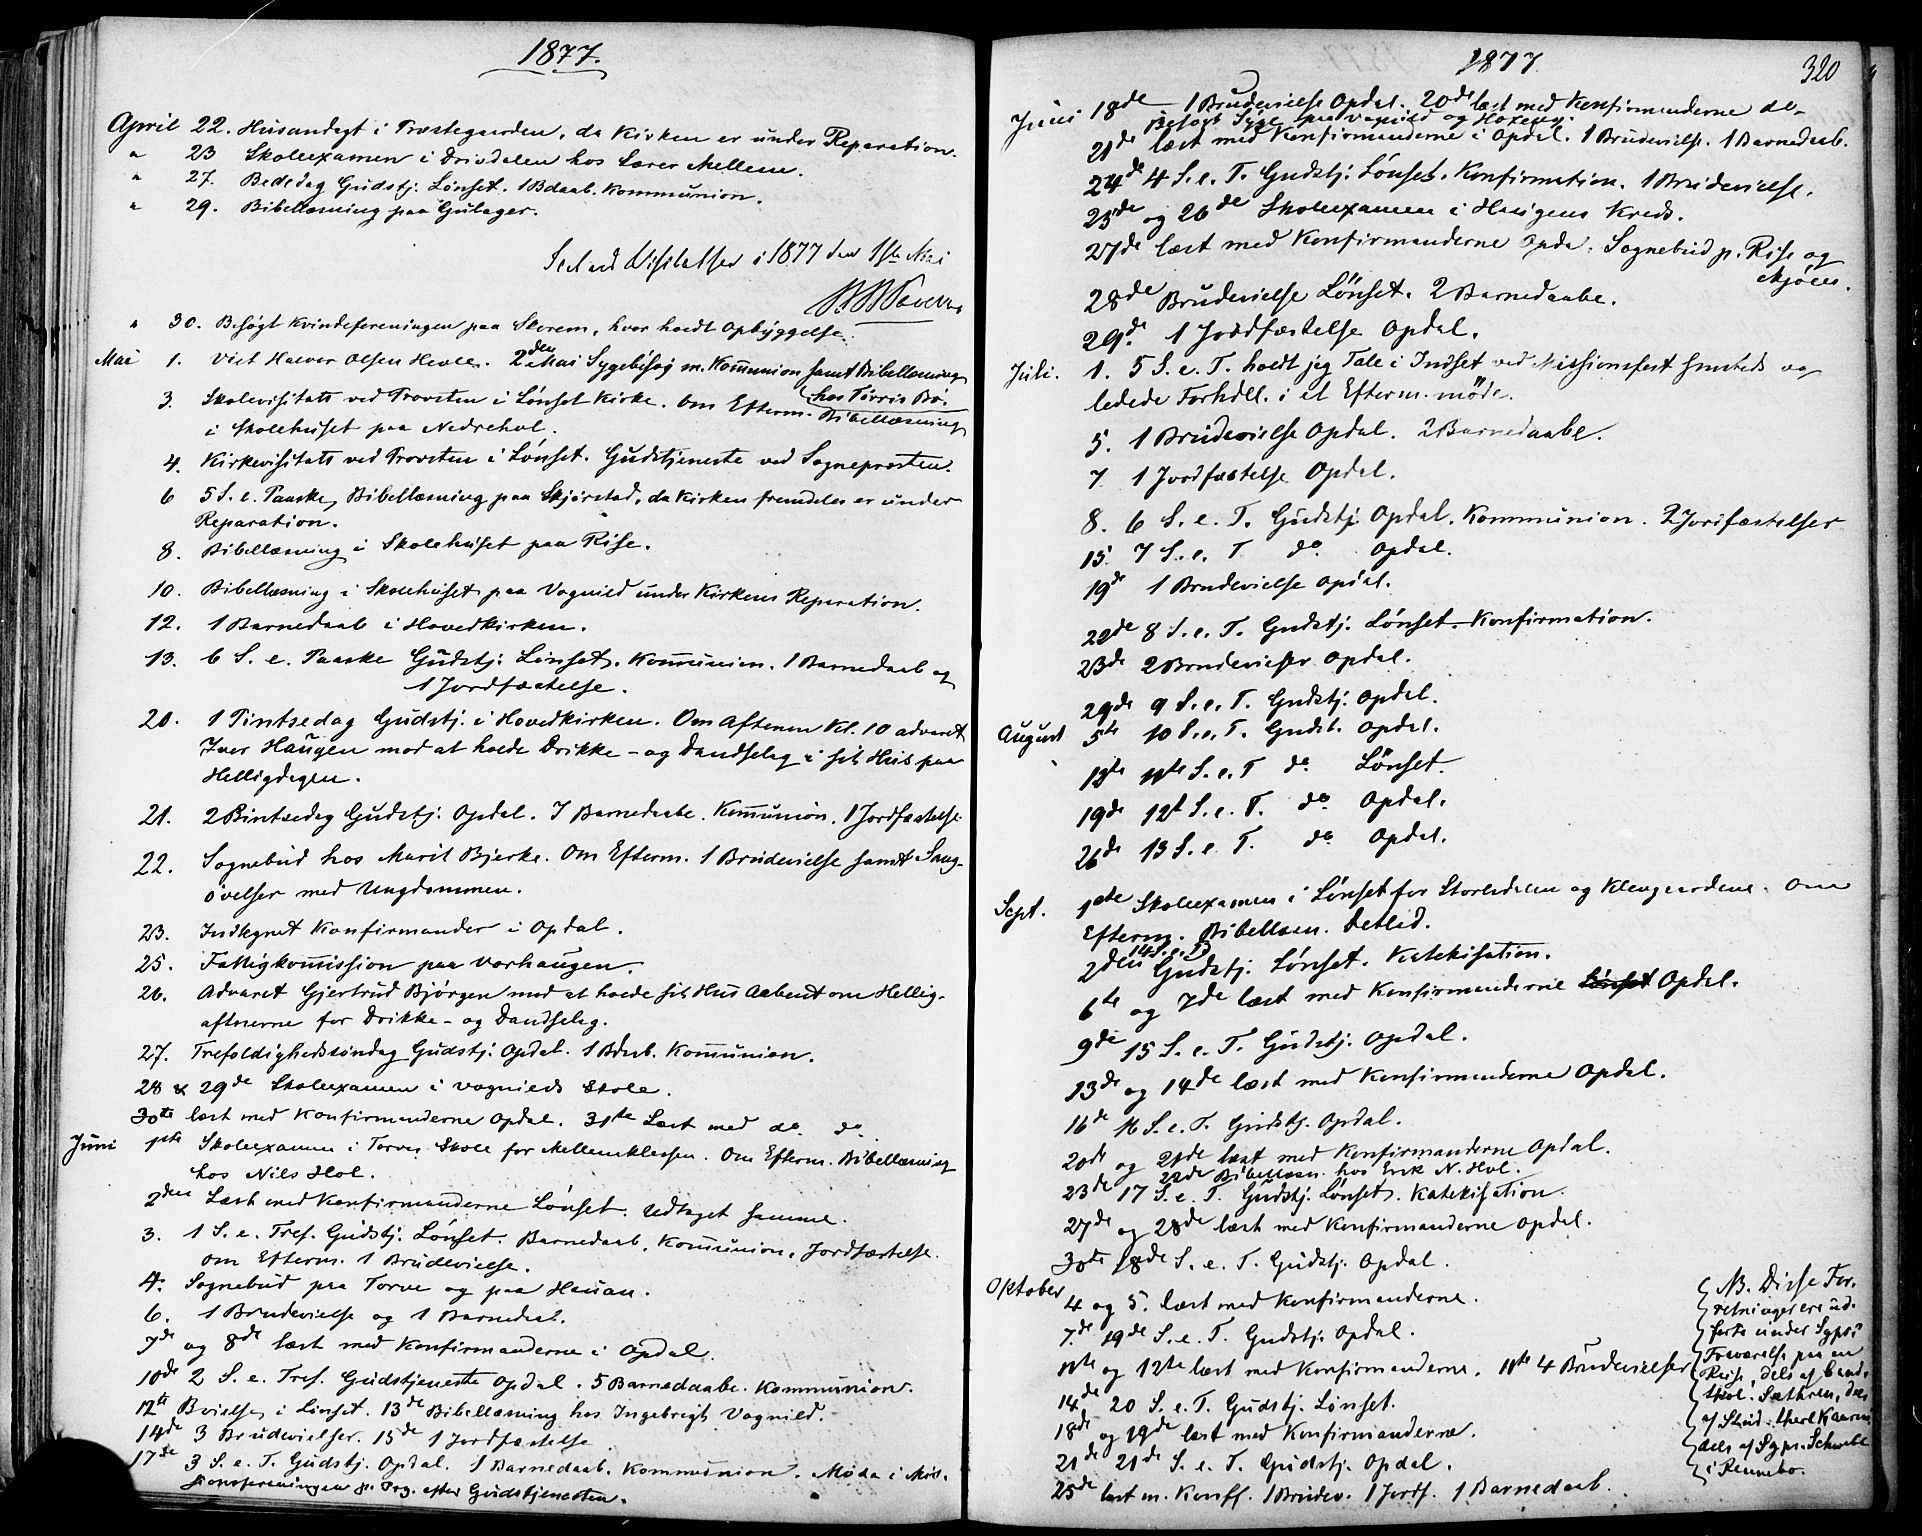 1877.
April 22. Husandagt i Præstegaarden, da Kirken er under Reparation.
" 23 Skoleexamen i Drivdalen hos Lærer Mellem.
" 27. Bededag Gudstj. Lönset. 1 Bdaab. Kommunion.
" 29. Bibellæsning paa Gulager.
Seet ved Visitatsen i 1877 den 1ste Mai
" 30. Besögt Kvindeforeningen paa Skorem, hvor holdt Opbyggelse.
Mai 1. Viet Halvor Olsen Hevle. 2den Mai Sygebesög m. Kommunion samt Bibellæsning
hos Törris Bö.
3. Skolevisitats ved Provsten i Lönset Kirke. Om Efterm. Bibellæsning
i Skolehuset paa Nedrehol.
4. Kirkevisitats ved Provsten i Lönset. Gudstjeneste ved Sognepræsten.
6 5 S. e. Paaske, Bibellæsning paa Skjörstad, da Kirken fremdeles er under
Reparation.
8. Bibellæsning i Skolehuset paa Rise.
10. Bibellæsning i Skolehuset paa Vognild under Kirkens Reparation.
12. 1 Barnedaab i Hovedkirken.
13. 6 S. e. Paaske Gudstj. Lönset. Kommunion. 1 Barnedaab og
1 Jordfæstelse.
20. 1 Pintsedag Gudstj. i Hovedkirken. Om Aftenen Kl. 10 advaret
Iver Haugen mod at holde Drikke- og Dandselag i sit Hus paa
Helligdagen.
21. 2 Pintsedag Gudstj. Opdal. 7 Barnedaabe. Kommunion. 1 Jordfæstelse.
22. Sognebud hos Marit Bjerke. Om Efterm. 1 Brudevielse samt Sang-
övelser med Ungdommen.
23. Indtegnet Konfirmander i Opdal.
25. Fattigkomission paa Vorhaugen.
26. Advaret Gjertrud Bjørgen mod at holde sit Hus Aabent om Hellig-
aftnerne for Drikke- og Dandselag.
27. Trefoldighedssöndag Gudstj. Opdal. 1 Bdaab. Kommunion.
28 & 29de Skoleexamen i Vognilds Skole.
30te læst med Konfirmanderne Opdal. 31te Læst med do. do.
Juni 1ste Skoleexamen i Torves Skole for Mellemklassen. Om Efterm. Bibellæsning
hos Nils Hol.
2den Læst med Konfirmanderne Lönset. Udtaget samme.
3. 1 S. e. Tref. Gudstj. Lönset. Barnedaab, Kommunion, Jordfæstelse.
om Efterm. 1 Brudevielse.
4. Sognebud paa Torve og paa Hauan.
6. 1 Brudevielse og 1 Barnedaab.
7de og 8de læst med Konfirmanderne i Opdal.
10de 2 S. e. Tref. Gudstjeneste Opdal. 5 Barnedaabe. Kommunion.
12te Bvielse i Lönset. 13de Bibellæsning hos Ingebrigt Vognild.
14de 3 Brudevielser. 15de 1 Jordfæstelse
17de 3 S. e. T. Gudstj. Opdal. 1 Barnedaab. Kommunion. Möde i Mis-
sionsforeningen efter Gudstjenesten.
1877 320
Juni 18de 1 Brudevielse Opdal. 20de læst med Konfirmanderne do-
Besögt Syge paa Vognild og
21de læst med Konfirmanderne i Opdal. 1 Brudevielse. 1 Barnedaab.
24de 4 S. e. T. Gudstj. Lönset. Konfirmation. 1 Brudevielse.
25de og 26de Skoleexamen i Haugens Kreds.
27de læst med Konfirmanderne Opda. Sognebud p. Rise og
Mjöen.
28de Brudevielse Lönset. 2 Barnedaabe.
29de. 1 Jordfæstelse Opdal.
Juli. 1. 5 S. e. T. holdt jeg Tale i Indset ved Missionsfest sammesteds og
ledede Forhdll. i et Efterm. möde.
5. 1 Brudevielse Opdal. 2 Barnedaabe.
7 1 Jordfæstelse Opdal.
8. 6 S. e. T. Gudstj. Opdal. Kommunion. 2 Jordfæstelser
15. 7 S. e. T do. Opdal.
19de 1 Brudevielse Opdal.
22de 8 S. e. T. Gudstj. Lönset. Konfirmation.
23de 2 Brudevielser Opdal.
29de 9 S. e. T. Gudstj. Opdal.
August 5te 10 S. e. T. Gudst. Opdal.
12te 11te S. e. T do. Lönset.
19de 12t S. e. T. do Opdal.
26de 13 S. e. T. do Opdal.
Sept. 1ste Skoleexamen i Lönset for Storlidalen og Klevgaardene. Om
Efterm. Bibellæsn. Detlid.
2den 14 S. e. T Gudstj. Lönset. Katekisation.
6te og 7de læst med Konfirmanderne Lönset Opdal.
9de 15 S. e. T. Gudstj. Opdal.
13de og 14de læst med Konfirmanderne Opdal.
16de 16 S. e. T. Gudstj. Opdal.
20de og 21de læst med Konfirmanderne Opdal.
22de Bibellæsn. hos Erik N. Hol.
23de 17 S. e. T. Gudstj. Lönset. Katekisation.
27de og 28de læst med Konfirmanderne Opdal.
30te 18de S. e. T. Gudstj. Opdal.
Oktober 4 og 5. læst med Konfirmanderne.
7de 19de S. e. T. Gudstj. Opdal.
11te og 12te læst med Konfirmanderne. 11te 4 Brudevielser
14de 20 S. e. T. Gudstj. Lönset.
18de og 19de læst med Konfirmanderne.
21de 21de S. e. T. Gudstj. Opdal.
25de læst m. Konff. 1 Brudev. 1 Jordf. 1 Barnedaab.
NB. Disse For-
retninger ere ud-
förte under Sgpr.s
Fraværelse paa en
Reise, dels af Cand.
theol. Sæthren, dels
af Stud. theol Kaaren
dels af Sgpr. Schwabe
i Rennebo.